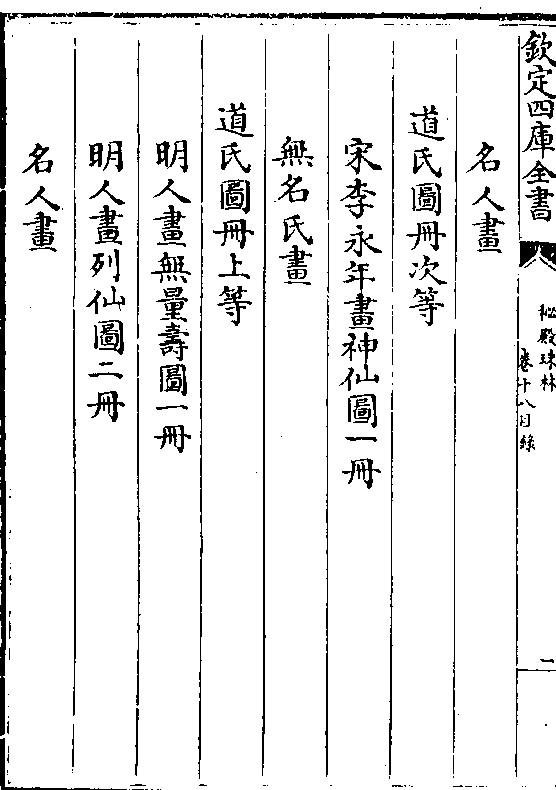 欽定四庫全書
秘殿珠林
卷十八目錄
二
名人畫
道氏圖冊次等
宋李永年畫神仙圖一冊
無名氏畫
道氏圖冊上等
明人畫無量壽圖一冊
明人畫列仙圖二冊
名人畫